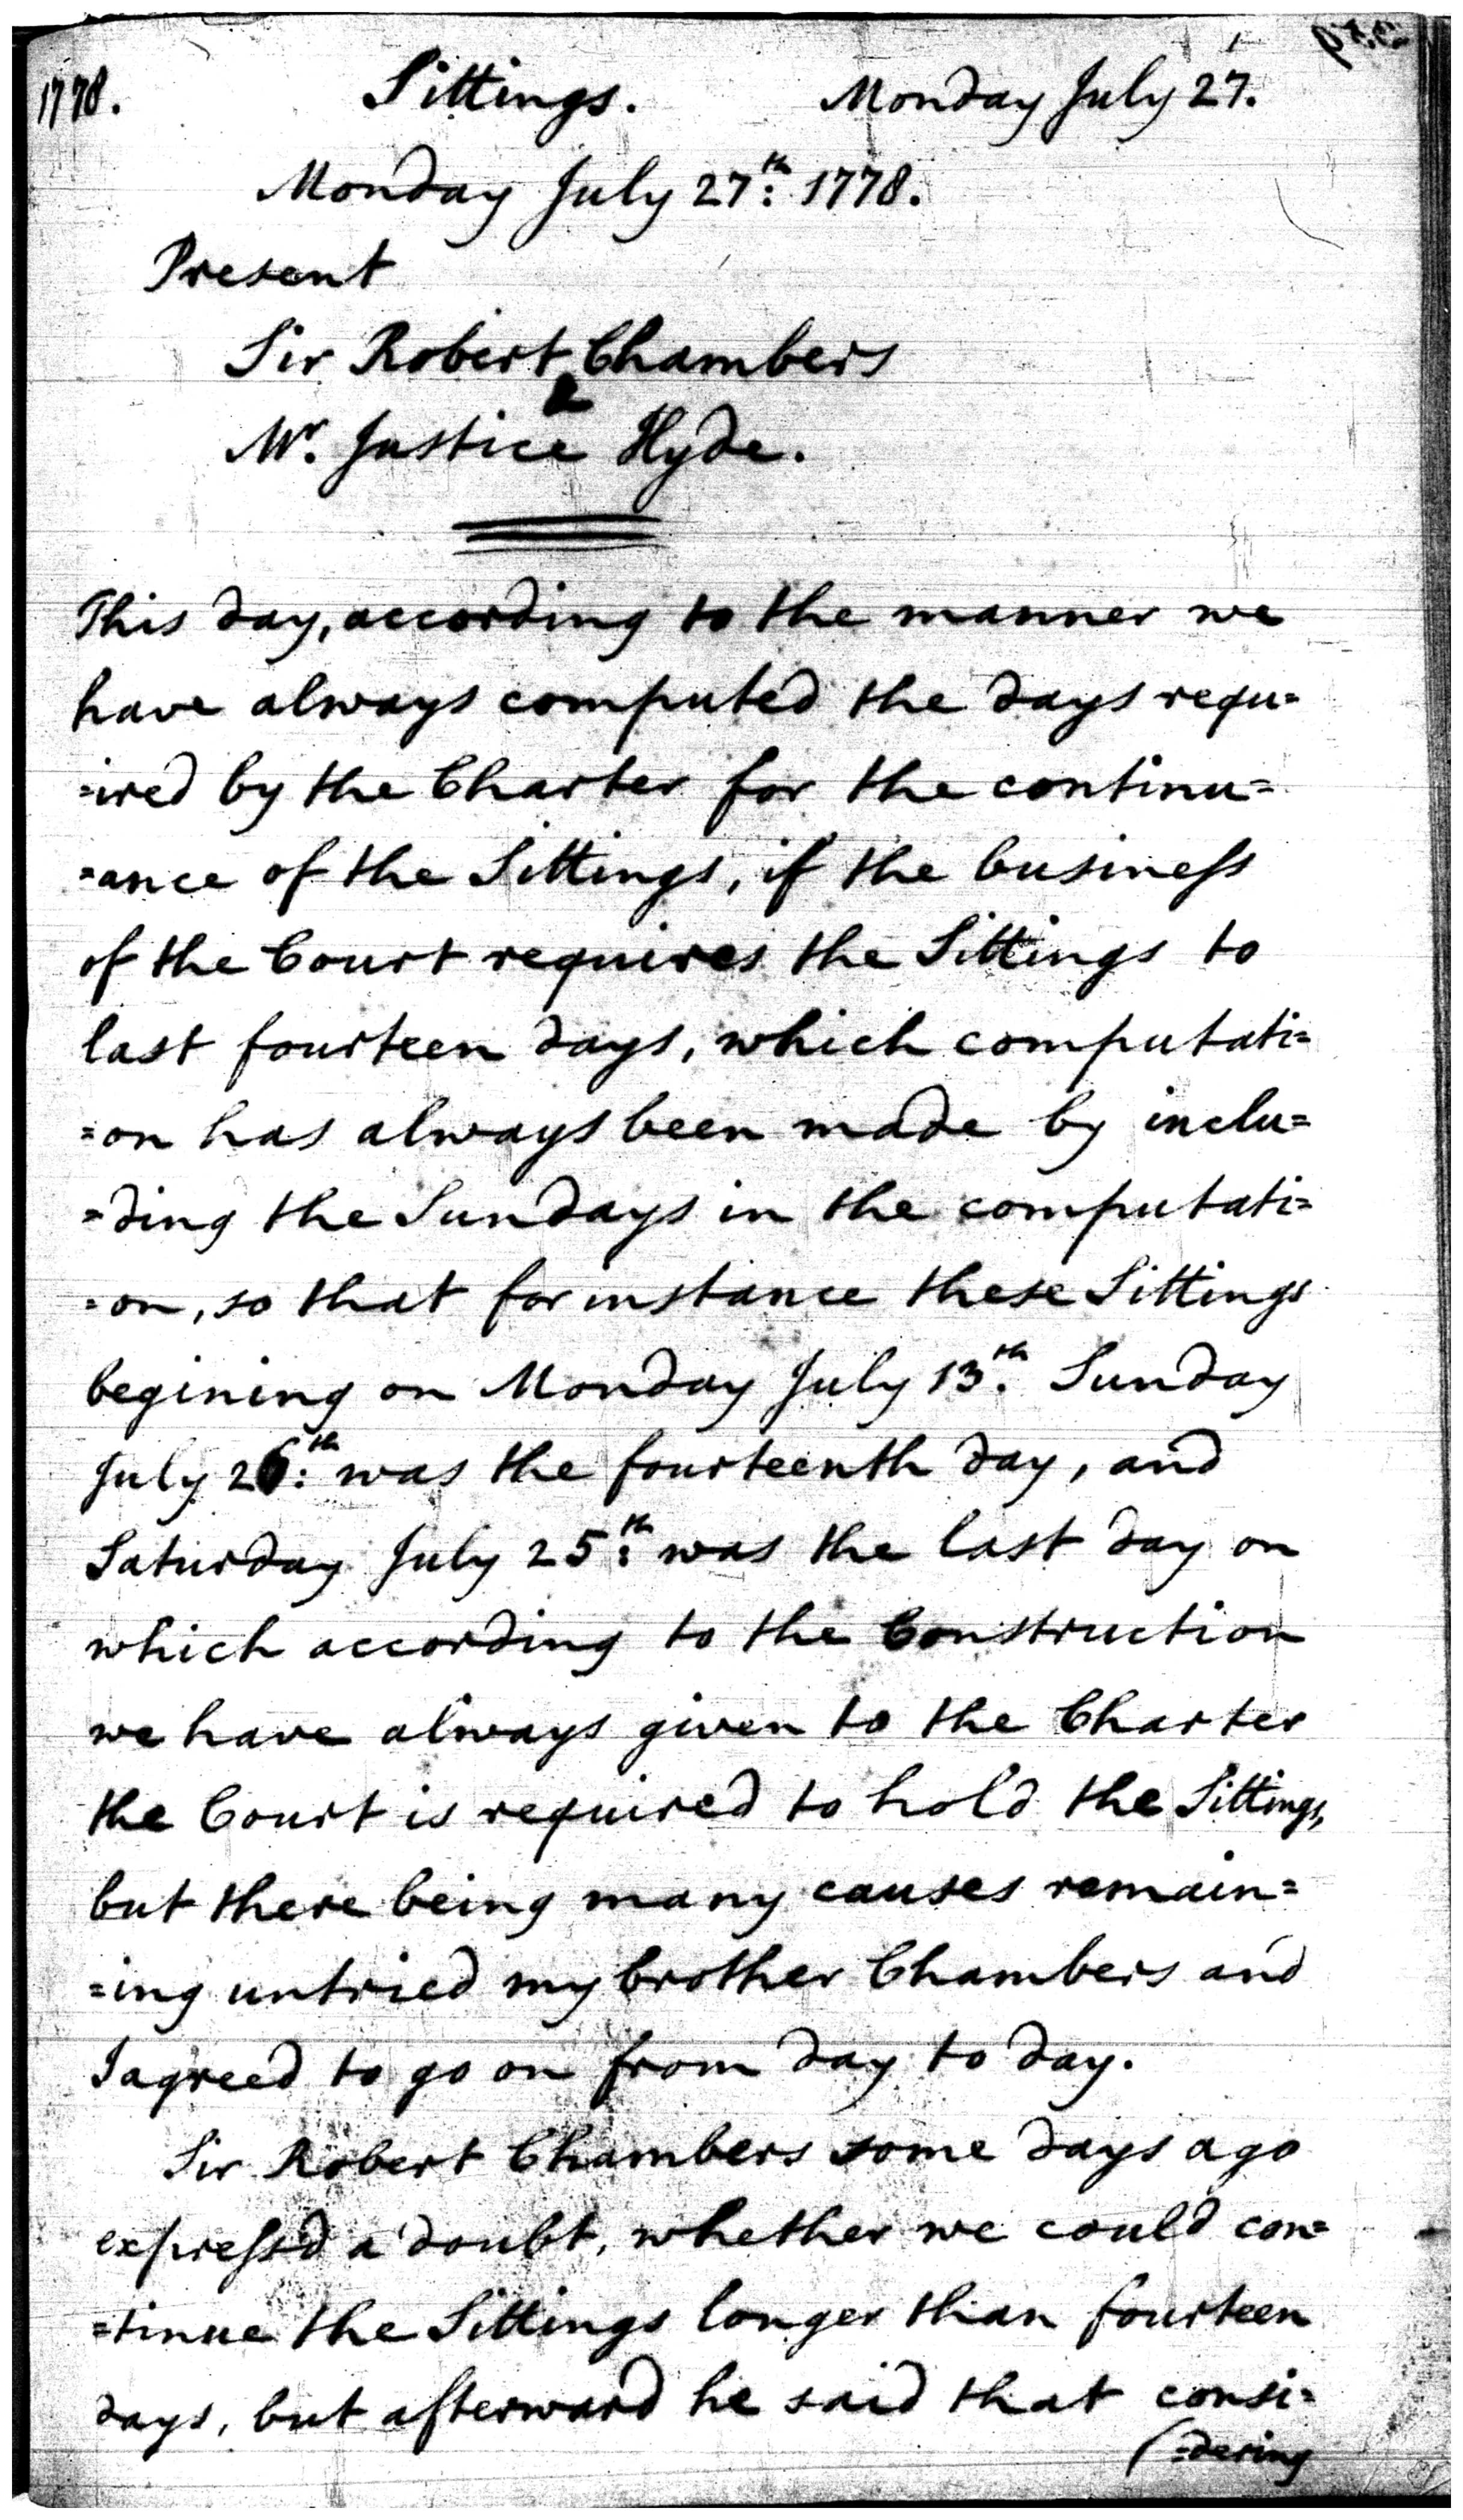 1778. Sittings. Monday July 27.
Monday July 27:th 1778.
Present
Sir Robert Chambers
&
Mr. Justice Hyde.
This day, according to the manner we
have always computed the days requ=
=ired by the Charter for the continu=
=ance of the Sittings, if the busineſs
of the Court requires the Sittings to
last fourteen days, which computati=
=on has always been made by inclu=
=ding the Sundays in the computati=
=on, so that for instance these Sittings
begining on Monday July 13.th Sunday
July 26:th was the fourteenth day, and
Saturday July 25:th was the last day on
which according to the Construction
we have always given to the Charter
the Court is required to hold the Sittings,
but there being many causes remain=
=ing untried my brother Chambers and
I agreed to go on from day to day.
Sir Robert Chambers some days ago
expreſs'd a doubt, whether we could con=
=tinue the Sittings longer than fourteen
days, but afterward he said that consi=
(=dering